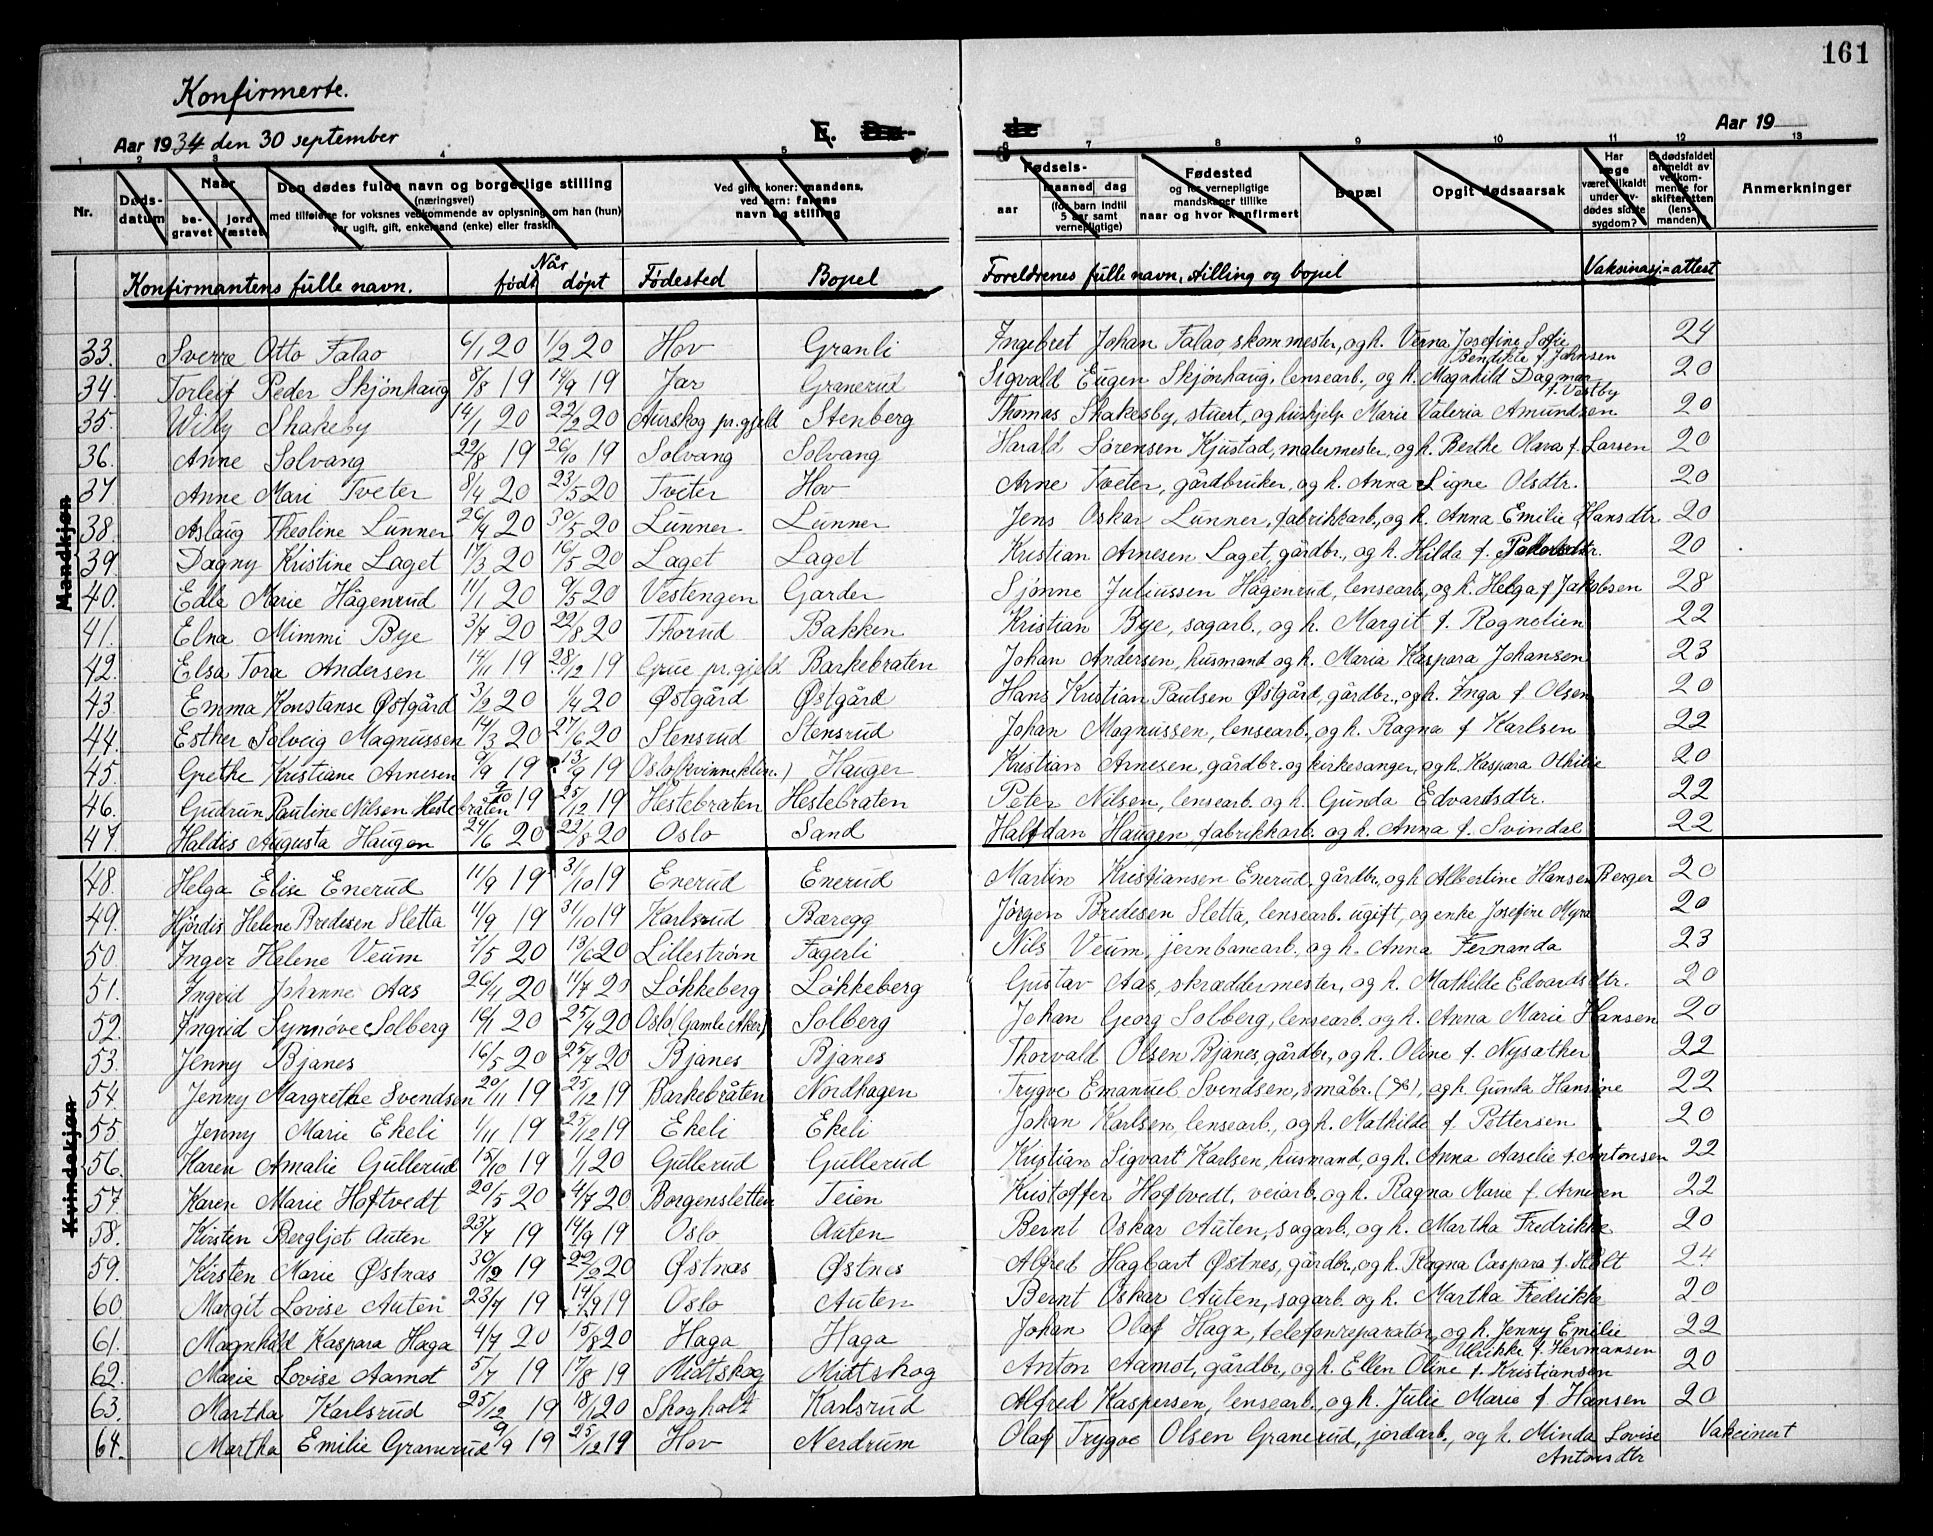 161
Konfirmerte.
Aar 1934 den 30 september
E. Dø- de
Aar 19
1 2 3 4 5 6 7 8 9 10 11 12 13
Nr.
Døds-datum
Naar
be-gravet
jord-fæstet
Den dødes fulde navn og borgerlige stilling
(næringsvei)
med tilføielse for voksnes vedkommende av oplysning om han (hun)
var ugift, gift, enkemand (enke) eller fraskilt
Ved gifte koner: mandens,
ved barn: farens
navn og stilling
Fødsels-
aar
maaned dag
(for barn indtil
5 aar samt
vernepligtige)
Fødested
og for vernepligtige
mandskaper tillike
naar og hvor konfirmert
Bopæl
Opgit dødsaarsak
Har
læge
været tilkaldt
under av-
dødes sidste
sygdom?
Er dødsfaldet
anmeldt av
vedkom-
mende for
skifteretten
(lens-
manden)?
Anmerkninger
Konfirmantens fulle navn. Når født døpt Fødested Bopel Foreldrenes fulle navn, stilling og bopel Vaksinasj.-attest
Mandkjøn
Kvindekjøn
33. Sverre Otto Falao 6/1 20 1/2 20 Hov Granli Ingebret Johan Falao, skommester, og h. Verna Josefine Sofie Bendikte f. Johnsen 24
34. Torleif Peder Skjønhaug 8/8 19 14/9 19 Jar Granerud Sigvald Eugen Skjønhaug, lensearb., og h. Magnhild Dagmar f. Vestby 20
35. Willy Shakeby 14/1 20 22/2 20 Aurskog pr.gjeld Stenberg Thomas Shakesby, stuert, og hushjelp Marie Valeria Amundsen 20
36. Anne Solvang 22/8 19 26/10 19 Solvang Solvang Harald Sørensen Kjustad, malermester, og h. Berthe Olava f. Larsen 20
37. Anne Mari Tveter 8/4 20 23/5 20 Tveter Hov Arne Tveter, gårdbruker, og h. Anna Signe Olsdtr. 20
38. Aslaug Theoline Lunner 26/4 20 30/5 20 Lunner Lunner Jens Oskar Lunner, fabrikkarb., og h. Anna Emilie Hansdtr. 20
39. Dagny Kristine Laget 17/3 20 16/5 20 Laget Laget Kristian Arnesen Laget, gårdbr., og h. Hilda f. 20
40. Edle Marie Hågenrud 11/1 20 9/5 20 Vestengen Garder Sjønne Juliussen Hågenrud, lensearb., og h. Helga f. Jakobsen 28
41. Elna Mimmi Bye 3/7 20 22/8 20 Thorud Bakken Kristian Bye, sagarb., og h. Margit f. Rognelien 22
42. Elsa Tora Andersen 14/11 19 28/12 19 Grue pr.gjeld Barkebråten Johan Andersen, husmand og h. Maria Kaspara Johansen 23
43. Emma Konstanse Østgård 3/2 20 1/4 20 Østgård Østgård Hans Kristian Paulsen Østgård, gårdbr., og h. Inga f. Olsen 20
44. Esther Solveig Magnussen 14/3 20 27/6 20 Stensrud Stensrud Johan Magnussen, lensearb., og h. Ragna f. Karlsen 22
45. Grethe Kristiane Arnesen 9/9 19 13/9 19 Oslo (kvinneklin.) Hauger Kristian Arnesen, gårdbr. og kirkesanger, og h. Kaspara Othilie 20
46. Gudrun Pauline Nilsen Hestebråten 9/10 19 25/12 19 Hestebråten Hestebråten Peter Nilsen, lensearb. og h. Gunda Edvardsdtr. 22
47. Haldis Augusta Haugen 24/6 20 22/8 20 Oslo Sand Halfdan Haugen, fabrikkarb. og h. Anna f. Svindal 22
48. Helga Elise Enerud 11/9 19 31/10 19 Enerud Enerud Martin Kristiansen Enerud, gårdbr., og h. Albertine Hansen Berger 20
49. Hjørdis Helene Bredesen Sletta 11/9 19 31/10 19 Karlsrud Bæregg Jørgen Bredesen Sletta, lensearb. ugift, og enke Josefine Myra 20
50. Inger Helene Veum 7/5 20 13/6 20 Lillestrøm Fagerli Nils Veum, jernbanearb. og h. Anna Fernanda 23
51. Ingrid Johanne Aas 26/4 20 11/7 20 Løkkeberg Løkkeberg Gustav Aas, skræddermester, og h. Mathilde Edvardsdtr. 20
52. Ingrid Synnøve Solberg 16/1 20 25/4 20 Oslo (Gamle Aker) Solberg Johan Georg Solberg, lensearb. og h. Anna Marie Hansen 20
53. Jenny Bjanes 16/5 20 25/7 20 Bjanes Bjanes Thorvald Olsen Bjanes, gårdbr., og h. Oline f. Nysæther 22
54. Jenny Margrethe Svendsen 20/11 19 25/12 19 Barkebråten Nordhagen Trygve Emanuel Svendsen, småbr. og h. Gunda Hansine 22
55 Jenny Marie Ekeli 1/11 19 25/12 19 Ekeli Ekeli Johan Karlsen, lensearb., og h. Mathilde f. Pettersen 20
56. Karen Amalie Gullerud 15/10 19 1/1 20 Gullerud Gullerud Kristian Sigvart Karlsen, husmand, og h. Anna Aaselie f. Antonsen 22
57. Karen Marie Hoftvedt 20/5 20 4/7 20 Borgensletten Teien Kristoffer Hoftvedt, veiarb. og h. Ragna Marie f. Arnesen 22
58. Kirsten Bergljot Auten 23/7 19 14/9 19 Oslo Auten Bernt Oskar Auten, sagarb., og h. Martha Fredrikke 20
59. Kirsten Marie Østnæs 30/12 19 22/2 20 Østnæs Østnes Alfred Hagbart Østnes, gårdbr., og h. Ragna Caspara f. Holt 24
60. Margit Lovise Auten 23/7 19 14/9 19 Oslo Auten Bernt Oskar Auten, sagarb. og h. Martha Fredrikke 20
61. Magnhild Kaspara Haga 4/7 20 15/8 20 Haga Haga Johan Olaf Haga, telefonreparatør, og h. Jenny Emilie Ulrikke f. Hermansen 22
62. Marie Lovise Aamot 5/7 19 17/8 19 Midtskog Midtskog Anton Aamot, gårdbr., og h. Ellen Oline f. Kristiansen 20
63. Martha Karlsrud 25/12 19 18/1 20 Skogholt Karlsrud Alfred Kaspersen, lensearb., og h. Julie Marie f. Hansen 20
64. Martha Emilie Granerud 9/9 19 25/12 19 Hov Nerdrum Olaf Trygve Olsen Granerud, jordarb., og h. Minda Lovise Antonsdtr Vaksinert